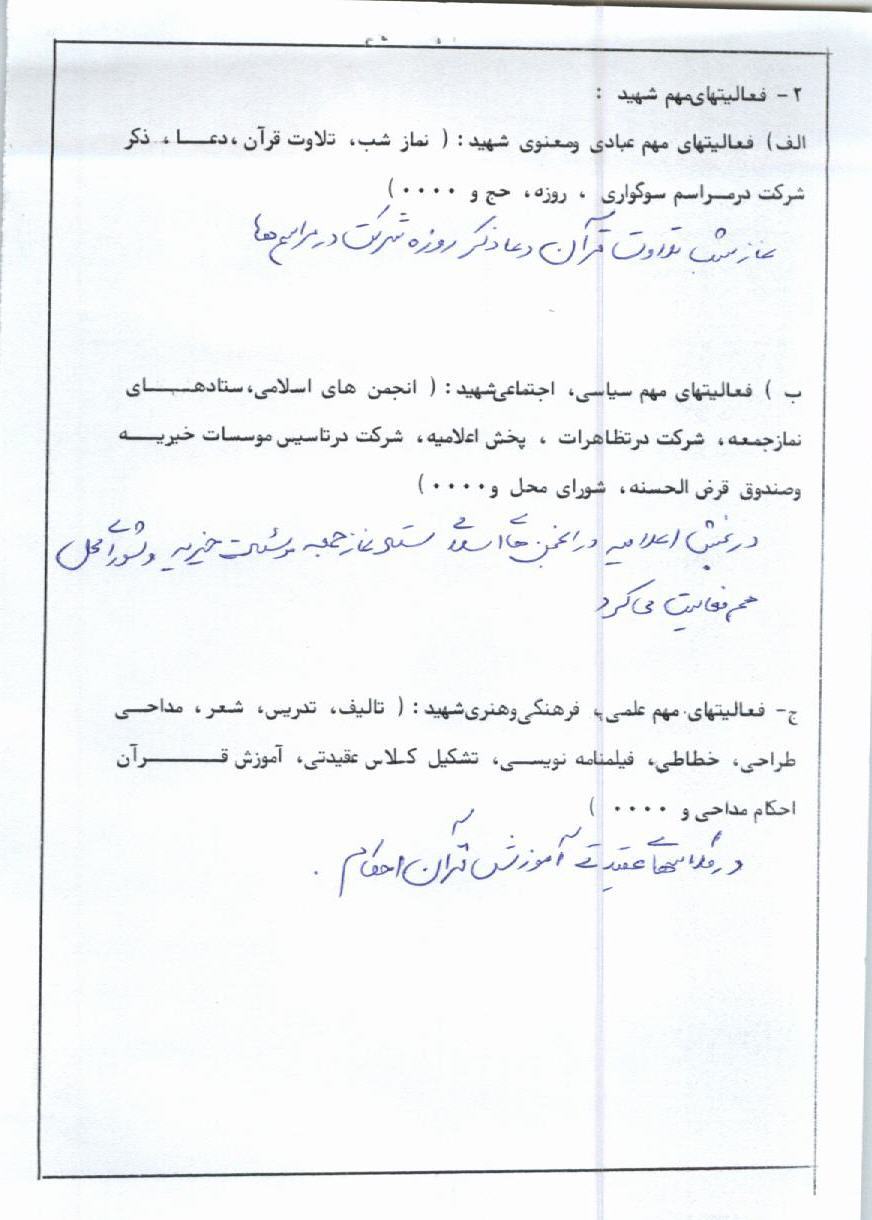 ۲- فعالیتهای مهم شهید :
الف) فعالیتهای مهم عبادی ومعنوی شهید: ( نماز شب، تلاوت قرآن ،دعا ، ذکر
شرکت درمراسم سوگواری ، روزه، حج و ۰۰۰۰ )
نماز شب تلاوت قرآن دعا ذکر روزه شرکت در مراسم ها
ب ) فعالیتهای مهم سیاسی، اجتماعی شهید: ( انجمن های اسلامی،ستادهای
نمازجمعه، شرکت درتظاهرات ، پخش اعلامیه، شرکت درتاسیس موسسات خیریه
وصندوق قرض الحسنه، شورای محل و۰۰۰۰ )
در پخش اعلامیه در انجمن های اسلامی ستاد نماز جمعه موسسات خیریه و شورای محل
هم فعالیت می کرد
ج- فعالیتهای مهم علمی، فرهنگی وهنری شهید: ( تالیف، تدریس، شعر، مداحی
طراحی، خطاطی، فیلمنامه نویسی، تشکیل کلاس عقیدتی، آموزش قرآن
احکام مداحی و ۰۰۰۰ )
در کلاسهای عقیدتی آموزش قرآن احکام .